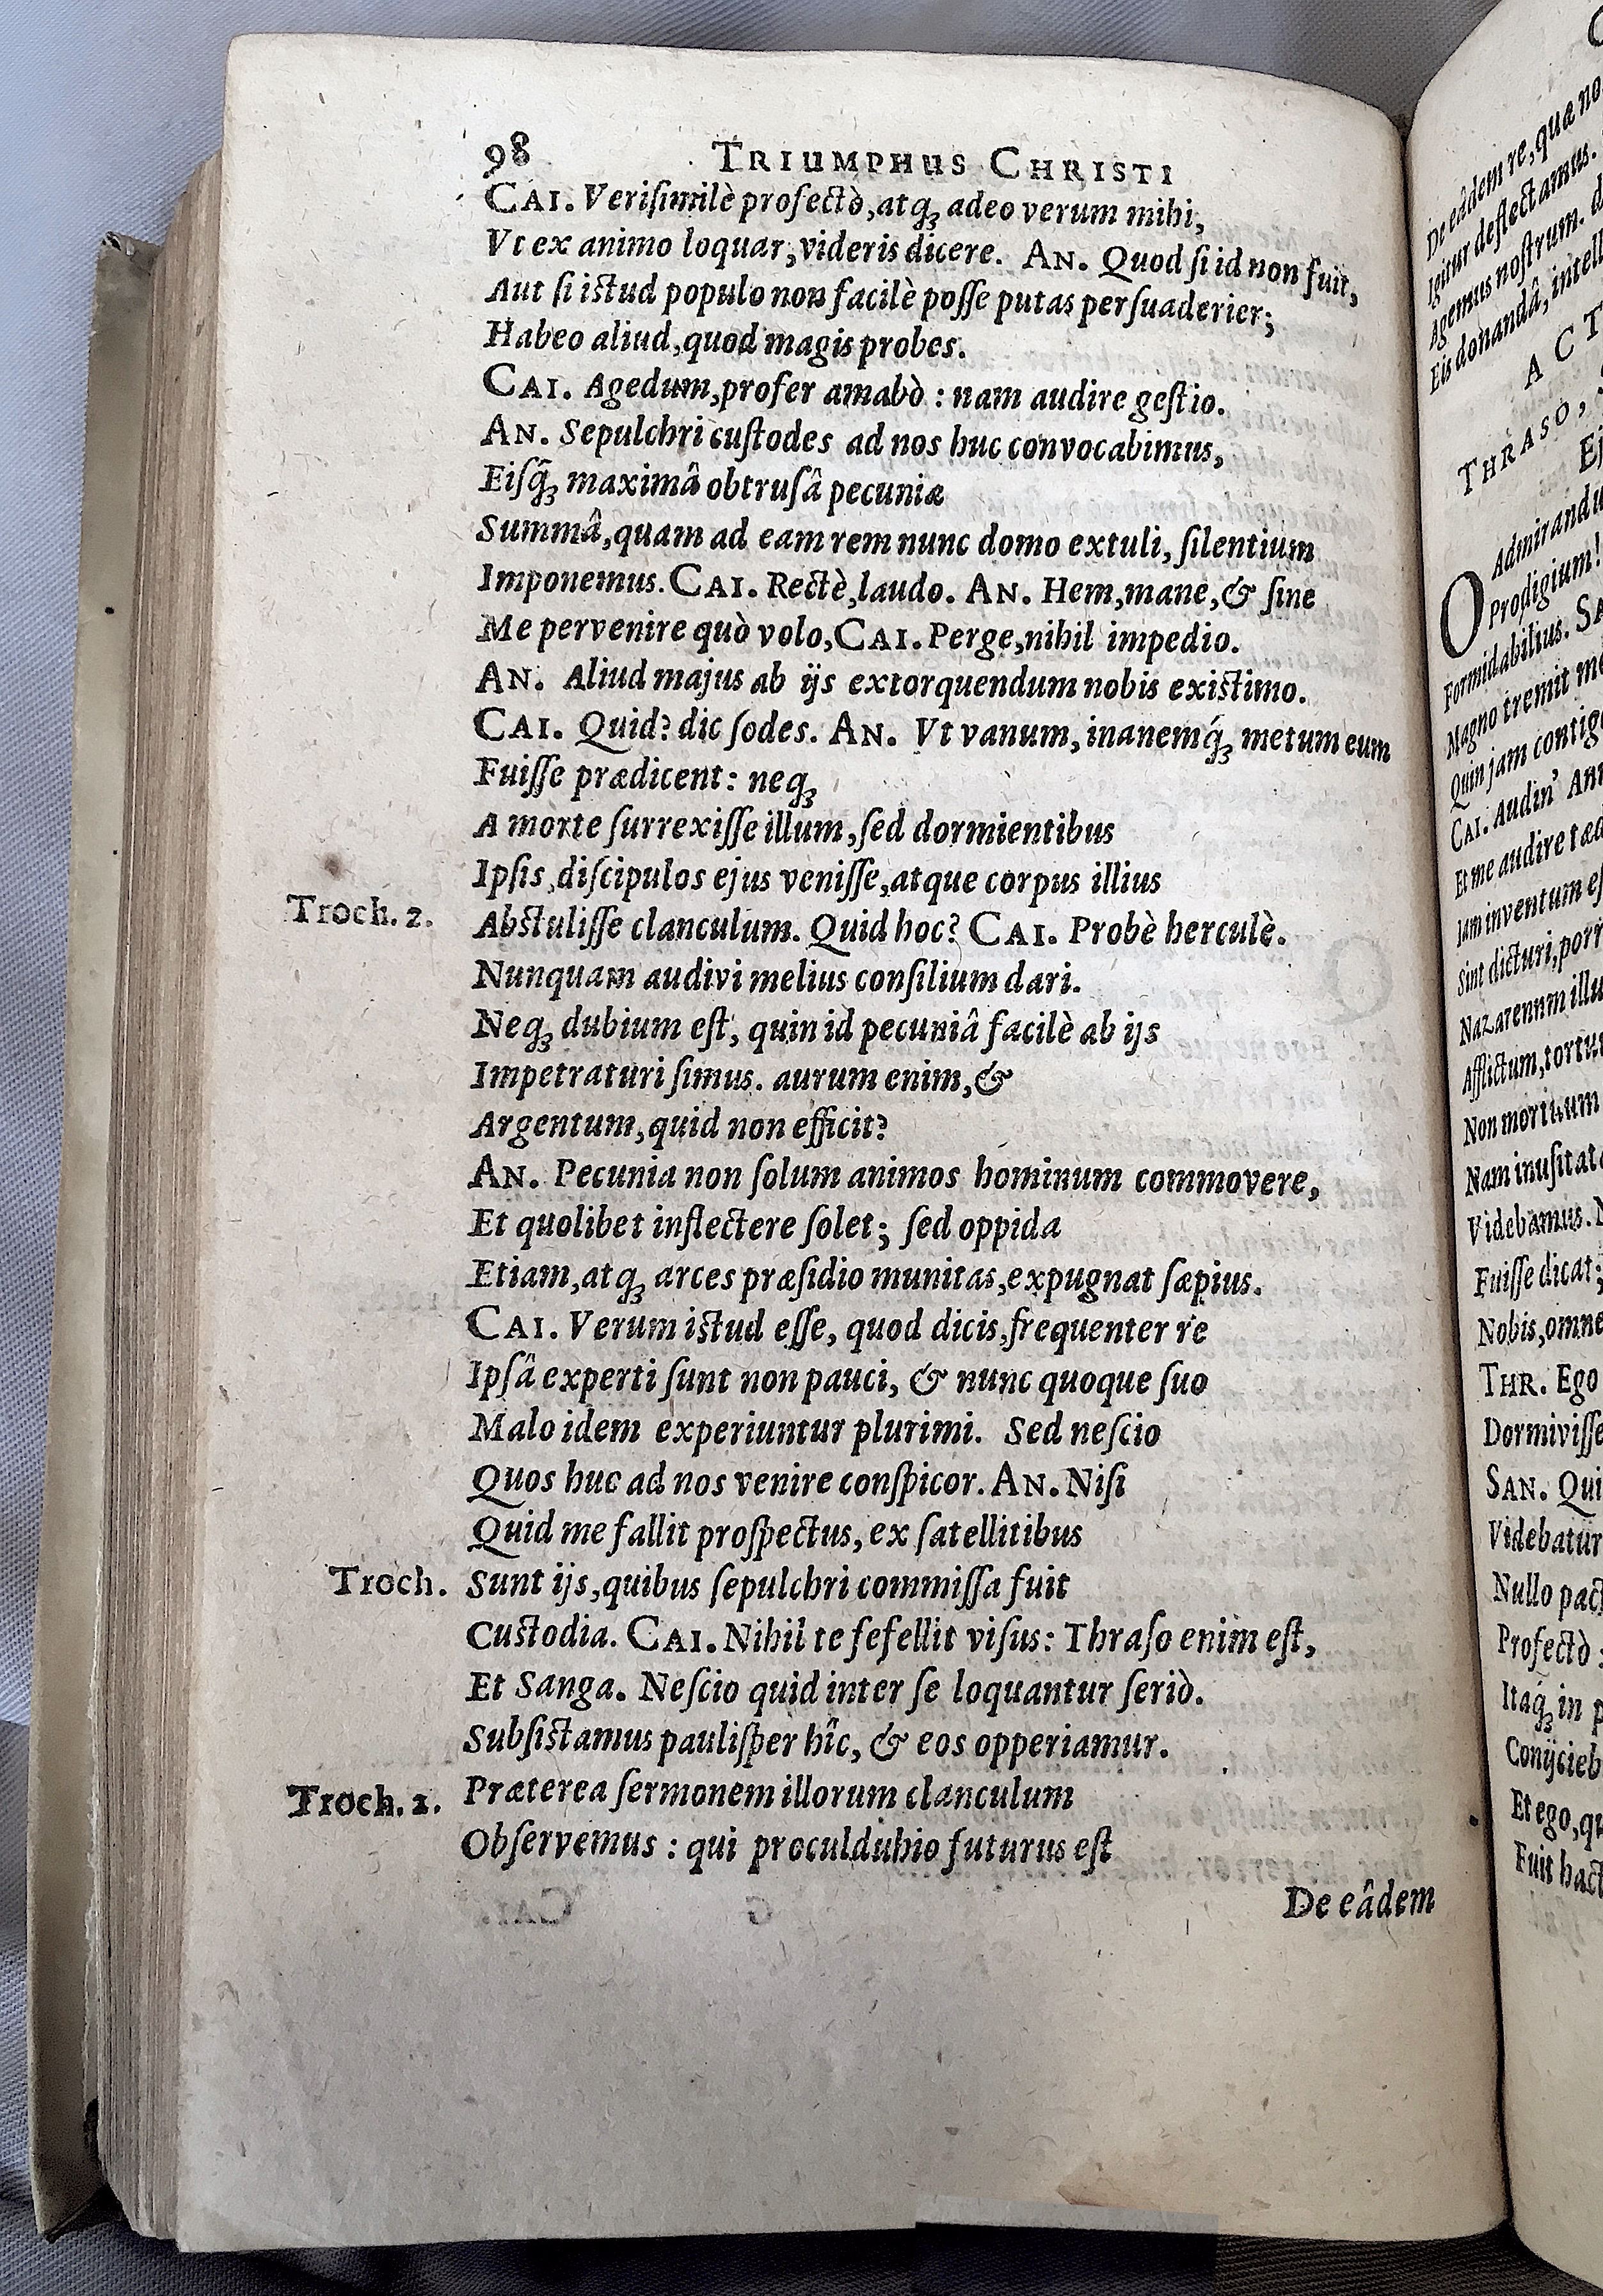 98 TRIUMPHUS CHRISTI
CAI. Veriſimilè profectò, atq́; adeo verum mihi,
Vt ex animo loquar, videris dicere. AN. Quod ſi id non fuit,
Aut ſi iſtud populo non facilè poſſe putas perſuaderier;
Habeo aliud, quod magis probes.
CAI. Agedum, profer amabò : nam audire geſtio.
AN. Sepulchri cuſtodes ad nos huc convocabimus,
Eiſq́; maximâ obtruſâ pecuniæ
Summâ, quam ad eam rem nunc domo extuli, ſilentium
Imponemus. CAI. Rectè, laudo. AN. Hem, mane, & ſine
Me pervenire quò volo, CAI. Perge, nihil impedio.
AN. Aliud majus ab ijs extorquendum nobis exiſtimo.
CAI. Quid? dic ſodes. AN. Vt vanum, inanemq́; metum eum
Fuiſſe prædicent: neq;
A morte ſurrexiſſe illum, ſed dormientibus
Ipſis, diſcipulos ejus veniſſe, atque corpus illius
Troch. 2. Abſtuliſſe clanculum. Quid hoc? CAI. Probè herculè.
Nunquam audivi melius conſilium dari.
Neq; dubium eſt, quin id pecuniâ facilè ab ijs
Impetraturi ſimus. aurum enim, &
Argentum, quid non efficit?
AN. Pecunia non ſolum animos hominum commovere,
Et quolibet inflectere ſolet; ſed oppida
Etiam, atq; arces præſidio munitas, expugnat ſæpius.
CAI. Verum iſtud eſſe, quod dicis, frequenter re
Ipſâ experti ſunt non pauci, & nunc quoque ſuo
Malo idem experiuntur plurimi. Sed neſcio
Quos huc ad nos venire conſpicor. AN. Niſi
Quid me fallit proſpectus, ex ſatellitibus
Troch. Sunt ijs, quibus ſepulchri commiſſa fuit
Cuſtodia. CAI. Nihil te fefellit viſus: Thraſo enim eſt,
Et Sanga. Neſcio quid inter ſe loquantur ſeriò.
Subſiſtamus pauliſper hîc, & eos opperiamur.
Troch. 2. Præterea ſermonem illorum clanculum
Obſervemus : qui proculdubio futurus eſt
De eâdem
De eâdem re, quæ
Igitur deflectamus.
Agemus noſtrum.
Eis donandâ,
ACT
THRASO,
O Admirandu
Prodigium!
Formidabilius. SA
Magno tremit
Quin jam contig
CAI. Audin' An
Et me audire
Iam inventum
Sint dicturi,
Nazarenum
Afflictum,
Non mortuum
Nam inuſitat
Videbamus.
Fuiſſe dicat;
Nobis, omne
THR. Ego
Dormiviſſe
SAN. Qui
Videbatur
Nullo pact
Profectò
Itaq́; in
Conÿcieb
Et ego, qu
Fuit hact